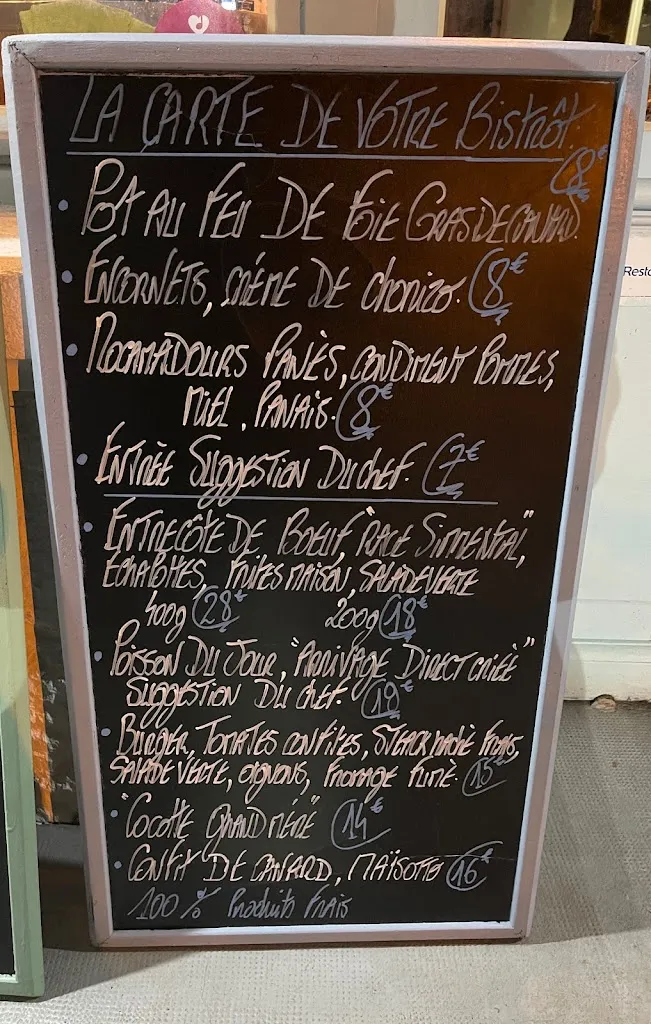 LA CARTE DE VOTRE BISTRÔT.
POT AU FEU DE FOIE GRAS DE CANARD. 8€
ENCORNETS, CRÈME DE CHORIZO. 8€
ROCAMADOURS PANÈS, CONDIMENT POMMES,
MIEL, PANAIS. 8€
ENTRÈE SUGGESTION DU CHEF. 7€
ENTRECÔTE DE BOEUF, "RACE SIMMENTAL",
ÉCHALOTTES, FRITES MAISON, SALADE VERTE
400g 28€ 200g 18€
POISSON DU JOUR, "ARRIVAGE DIRECT CRIÈE"
SUGGESTION DU CHEF. 19€
BURGER, TOMATES CONFITES, STEACK HACHÈ FRAIS,
SALADE VERTE, OIGNONS, FROMAGE FUMÈ. 15€
"COCOTTE GRAND MÈRE" 14€
CONFIT DE CANARD, MAÏSOTTO 16€
100 % PRODUITS FRAIS
Resto